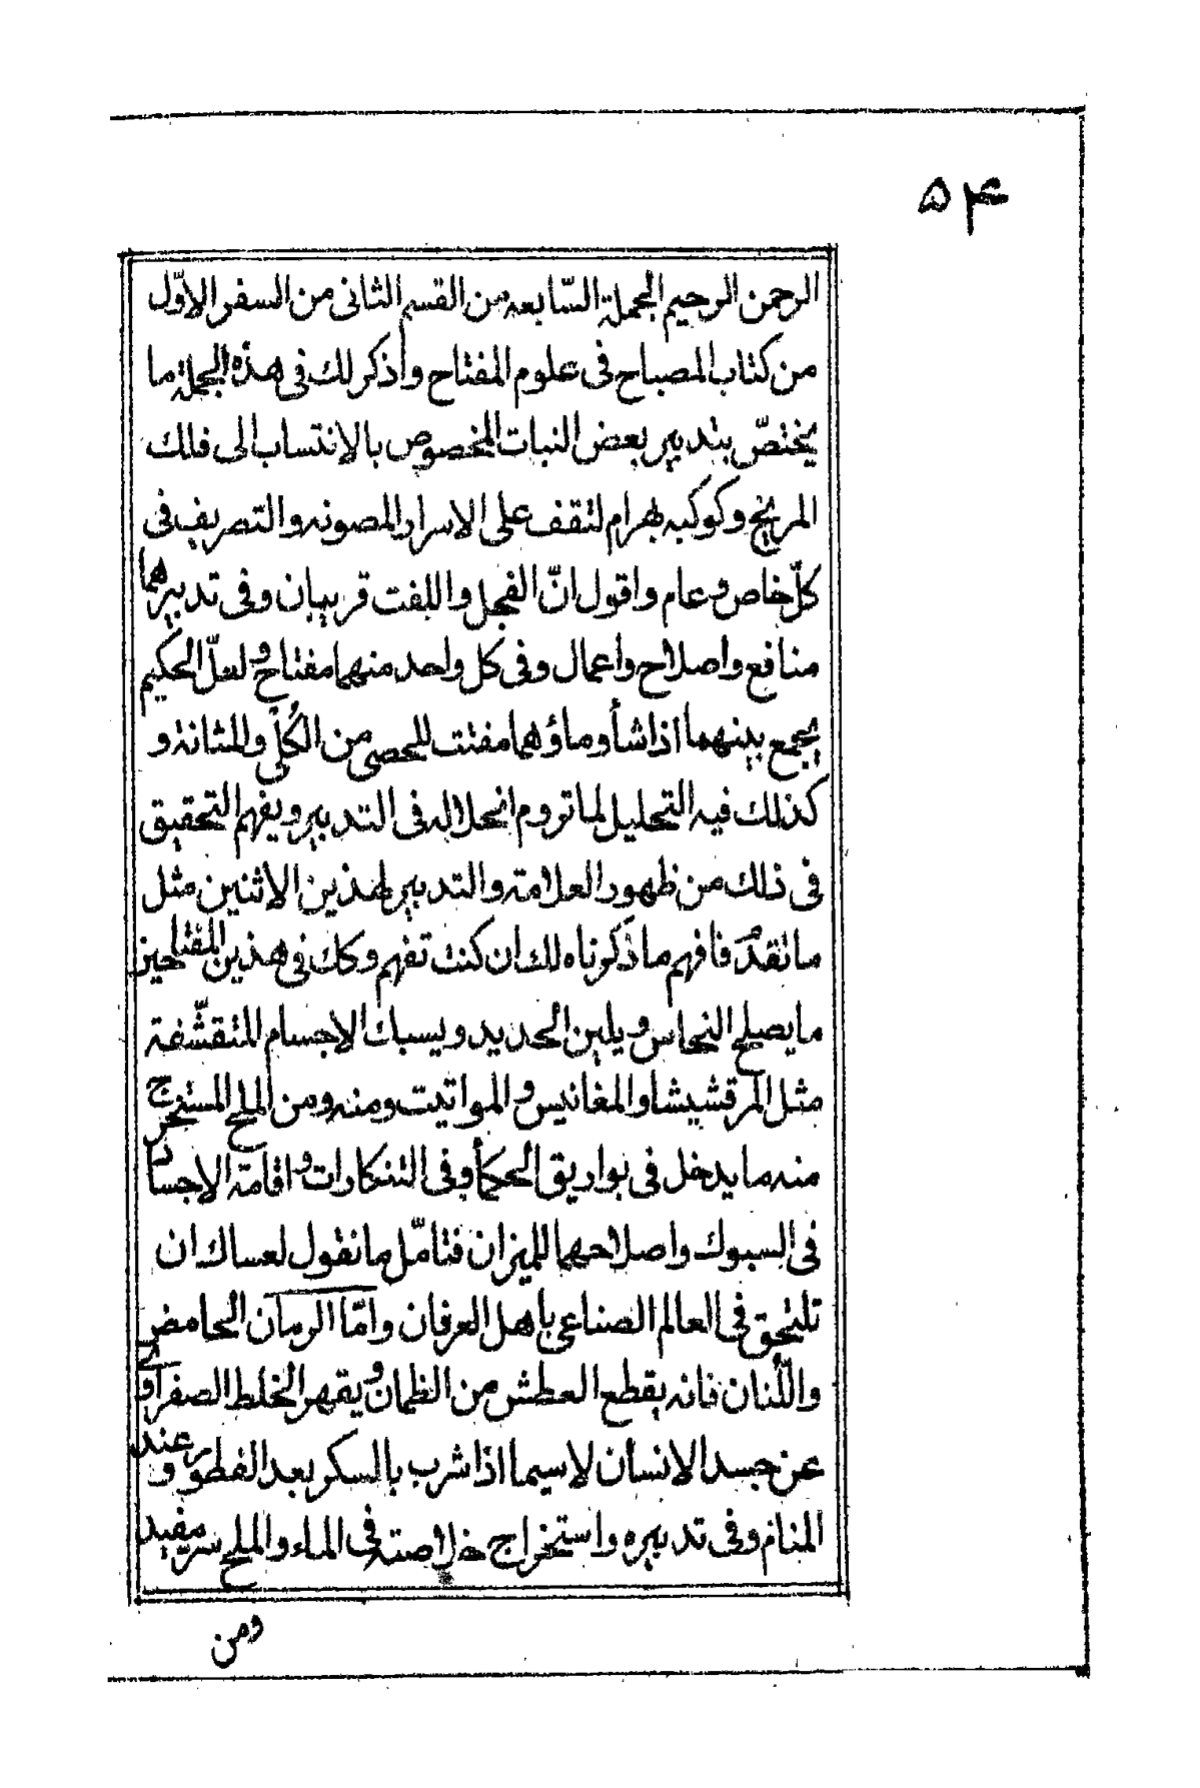 ۵۴
الرحمن الرحيم الجملة السّابعه من القسم الثانى من السفر الاوّل
من كتاب المصباح فى علوم المفتاح وأذكر لك فى هذه الجملة ما
يختصّ بتدبير بعض النبات المخصوص بالانتساب الى فلك
المريخ وكوكبه بهرام لتقف على الاسرار المصونه والتصريف فى
كلّ خاص وعام واقول انّ الفجل واللفت قريبان وفى تدبيرهما
منافع واصلاح واعمال وفى كل واحد منهما مفتاح ولعلّ الحكيم
يجمع بينهما اذا شأ وماؤهما مفتت للحصى من الكُلى والمثانة و
كذلك فيه التحليل لما تروم انحلاله فى التدبير ويفهم التحقيق
فى ذلك من ظهور العلامة والتدبير لهذين الاثنين مثل
ما تقدّم فافهم ما ذكرناه لك ان كنت تفهم وكك فى هذين المفتاحين
ما يصلح النحاس ويلين الحديد ويسبك الاجسام المتقشّفة
مثل المرقشيشا والمغانيس والمواتيت ومنه ومن الملح المستخرج
منه ما يدخل فى بواريق الحكمأ وفى التنكارات واقامة الاجساد
فى السبوك واصلاحهما للميزان فتامّل ما نقول لعساك ان
تلتحق فى العالم الصناعى باهل العرفان وامّا الرمان الحامض
واللّنان فانه يقطع العطش من الظمان ويقهر الخلط الصفراوى
عن جسد الانسان لاسيما اذا شرب بالسكر بعد الفطور وعند
المنام وفى تدبيره واستخراج خلاصته فى الماء والملح سر مفيد
ومن